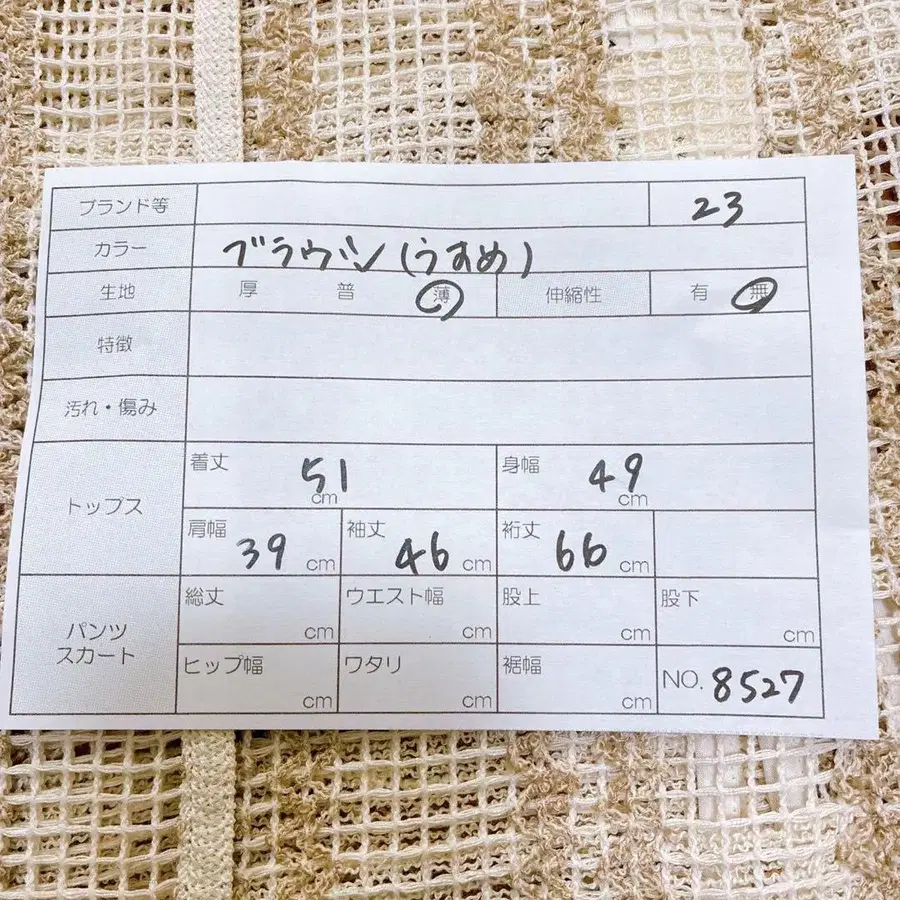 ブランド等 23
カラー ブラウン(うすめ)
生地 厚 普 薄 伸縮性 有 無
特徴
汚れ・傷み
トップス 着丈 51 cm 身幅 49 cm
肩幅 39 cm 袖丈 46 cm 裄丈 66 cm
パンツ スカート 総丈 cm ウエスト幅 cm 股上 cm 股下 cm
ヒップ幅 cm ワタリ cm 裾幅 cm NO. 8527